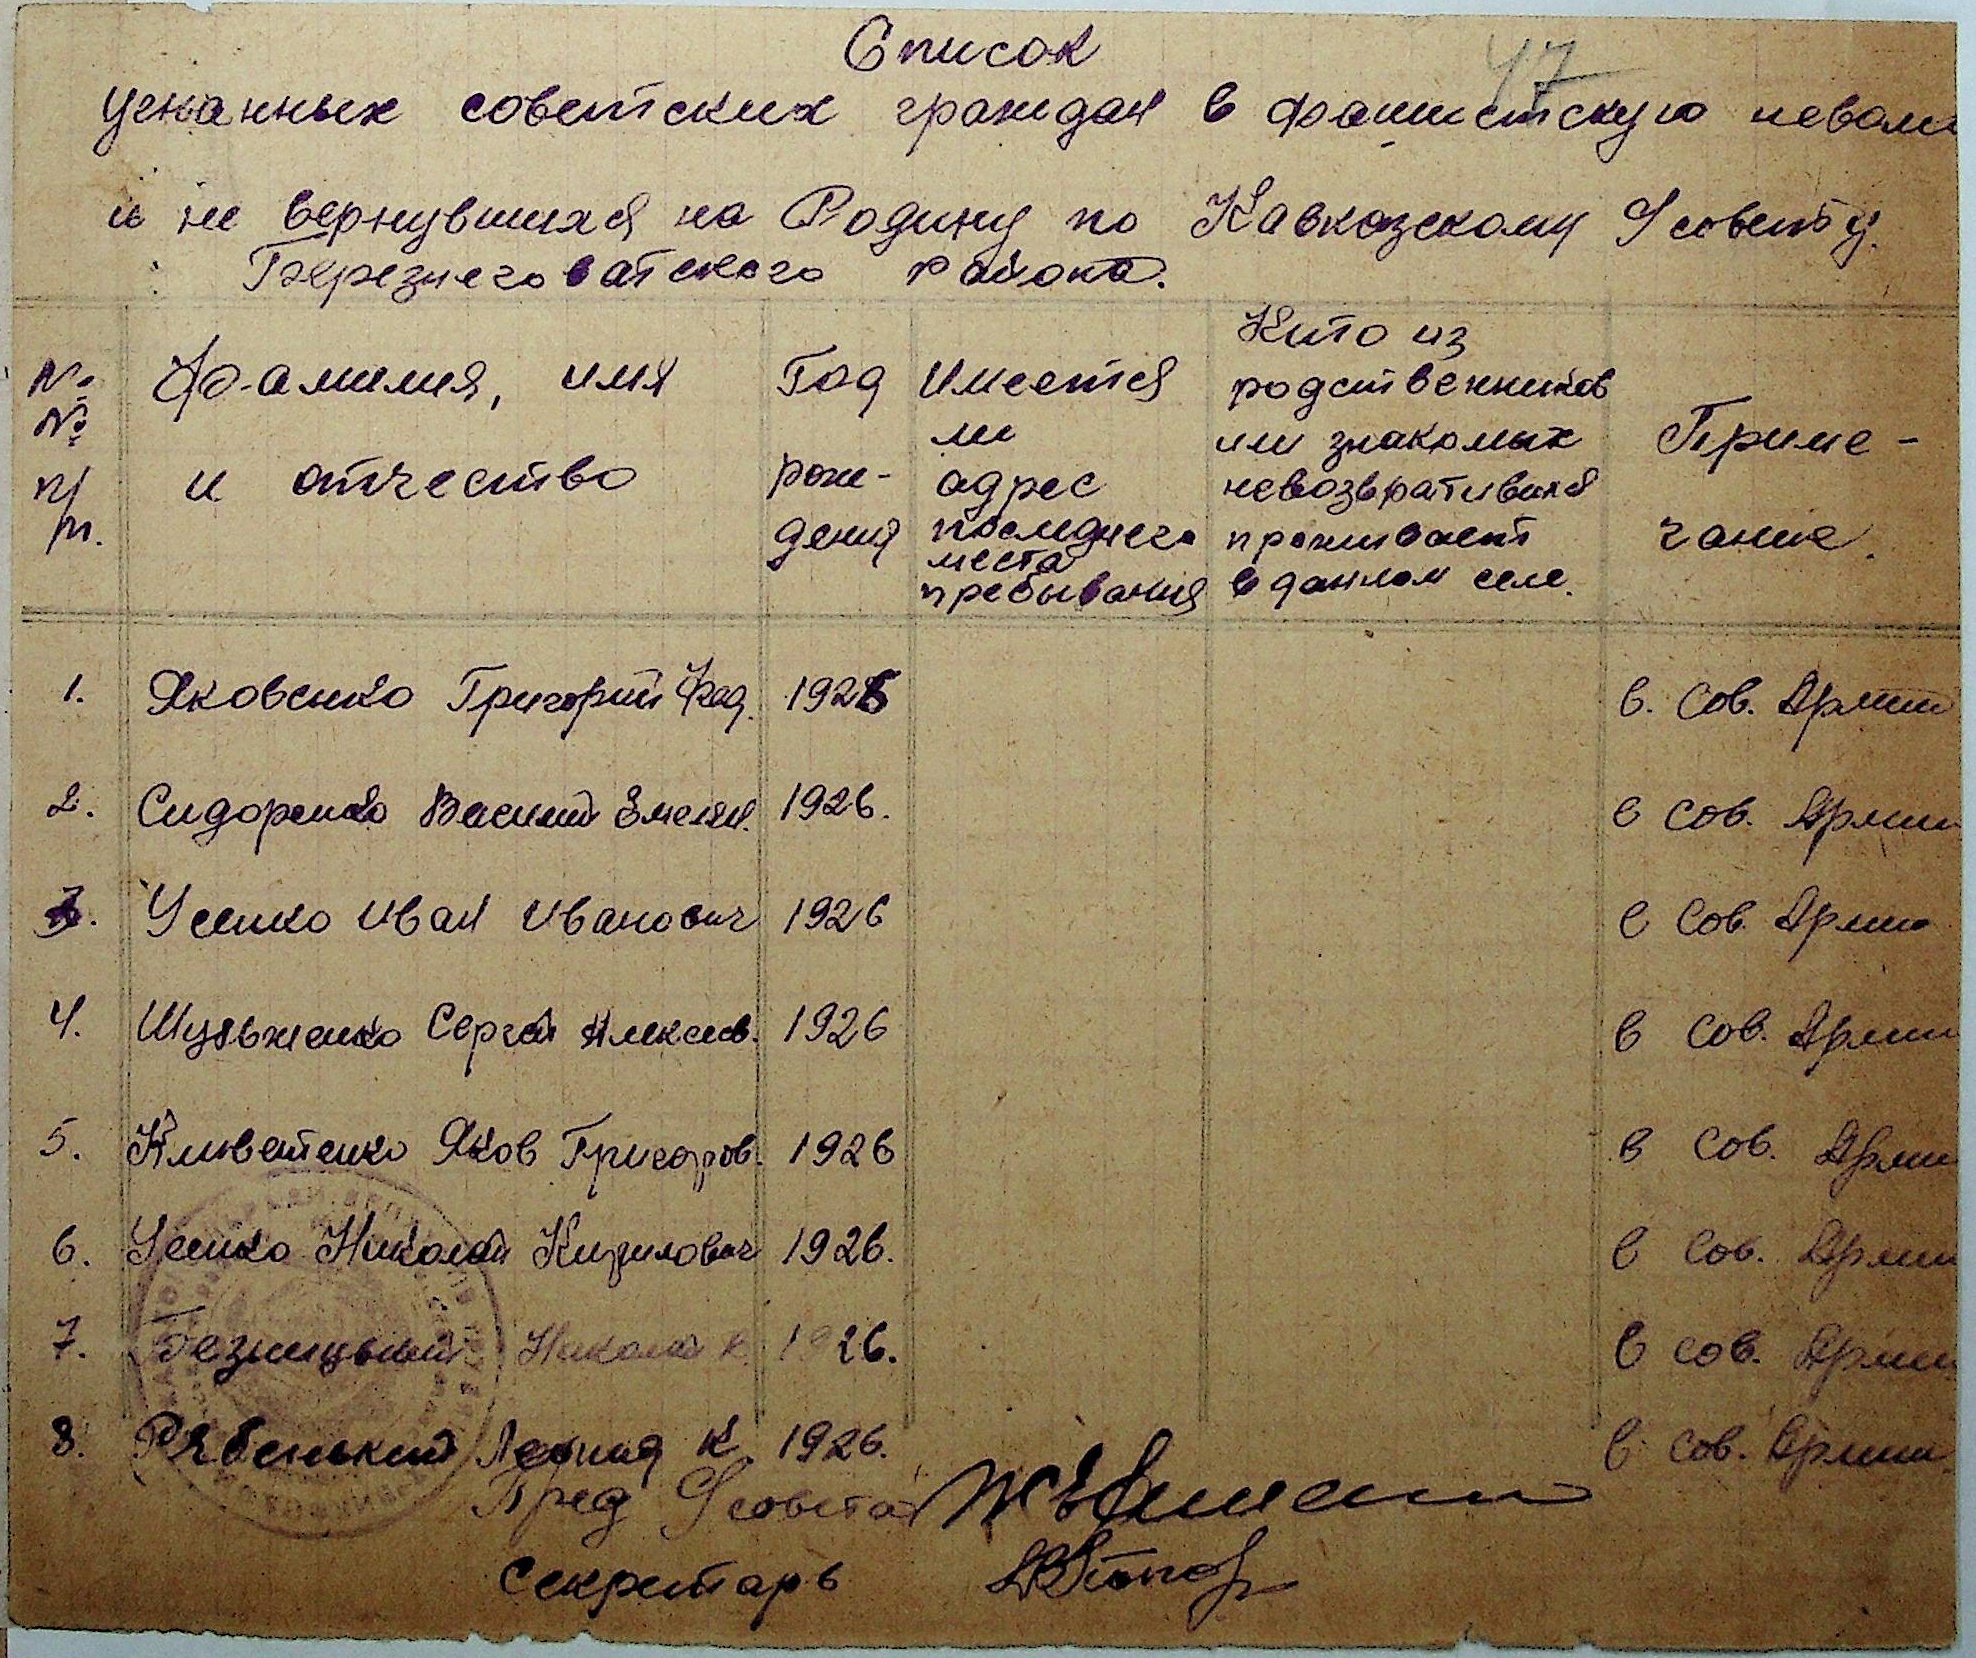 47
Список
угнанных советских граждан в фашистскую неволи
и не вернувшихся на Родину по Кавказскому С/совету
Березнеговатского района.
№ № п/п.
Фамилия, имя и отчество
Год рождения
Имеется ли адрес последнего места пребывания
Кто из родственников или знакомых невозвратившихся проживает в данном селе.
Приме-
чание.
1. Яковенко Григорий Фед. 1926 в. Сов. Армии
2. Сидоренко Василий Емельян. 1926. в Сов. Армии
3. Усенко Иван Иванович 1926 в Сов. Армии
4. Шульженко Сергей Алексеев. 1926 в Сов. Армии
5. Яков Григоров. 1926 в Сов. Армии
6. Усенко Николай Кирилович 1926. в Сов. Армии
7. Николай К. 1926. в Сов. Армии
8. Рябенький Леонид К. 1926. в Сов. Армии
Пред С/совета
Секретарь